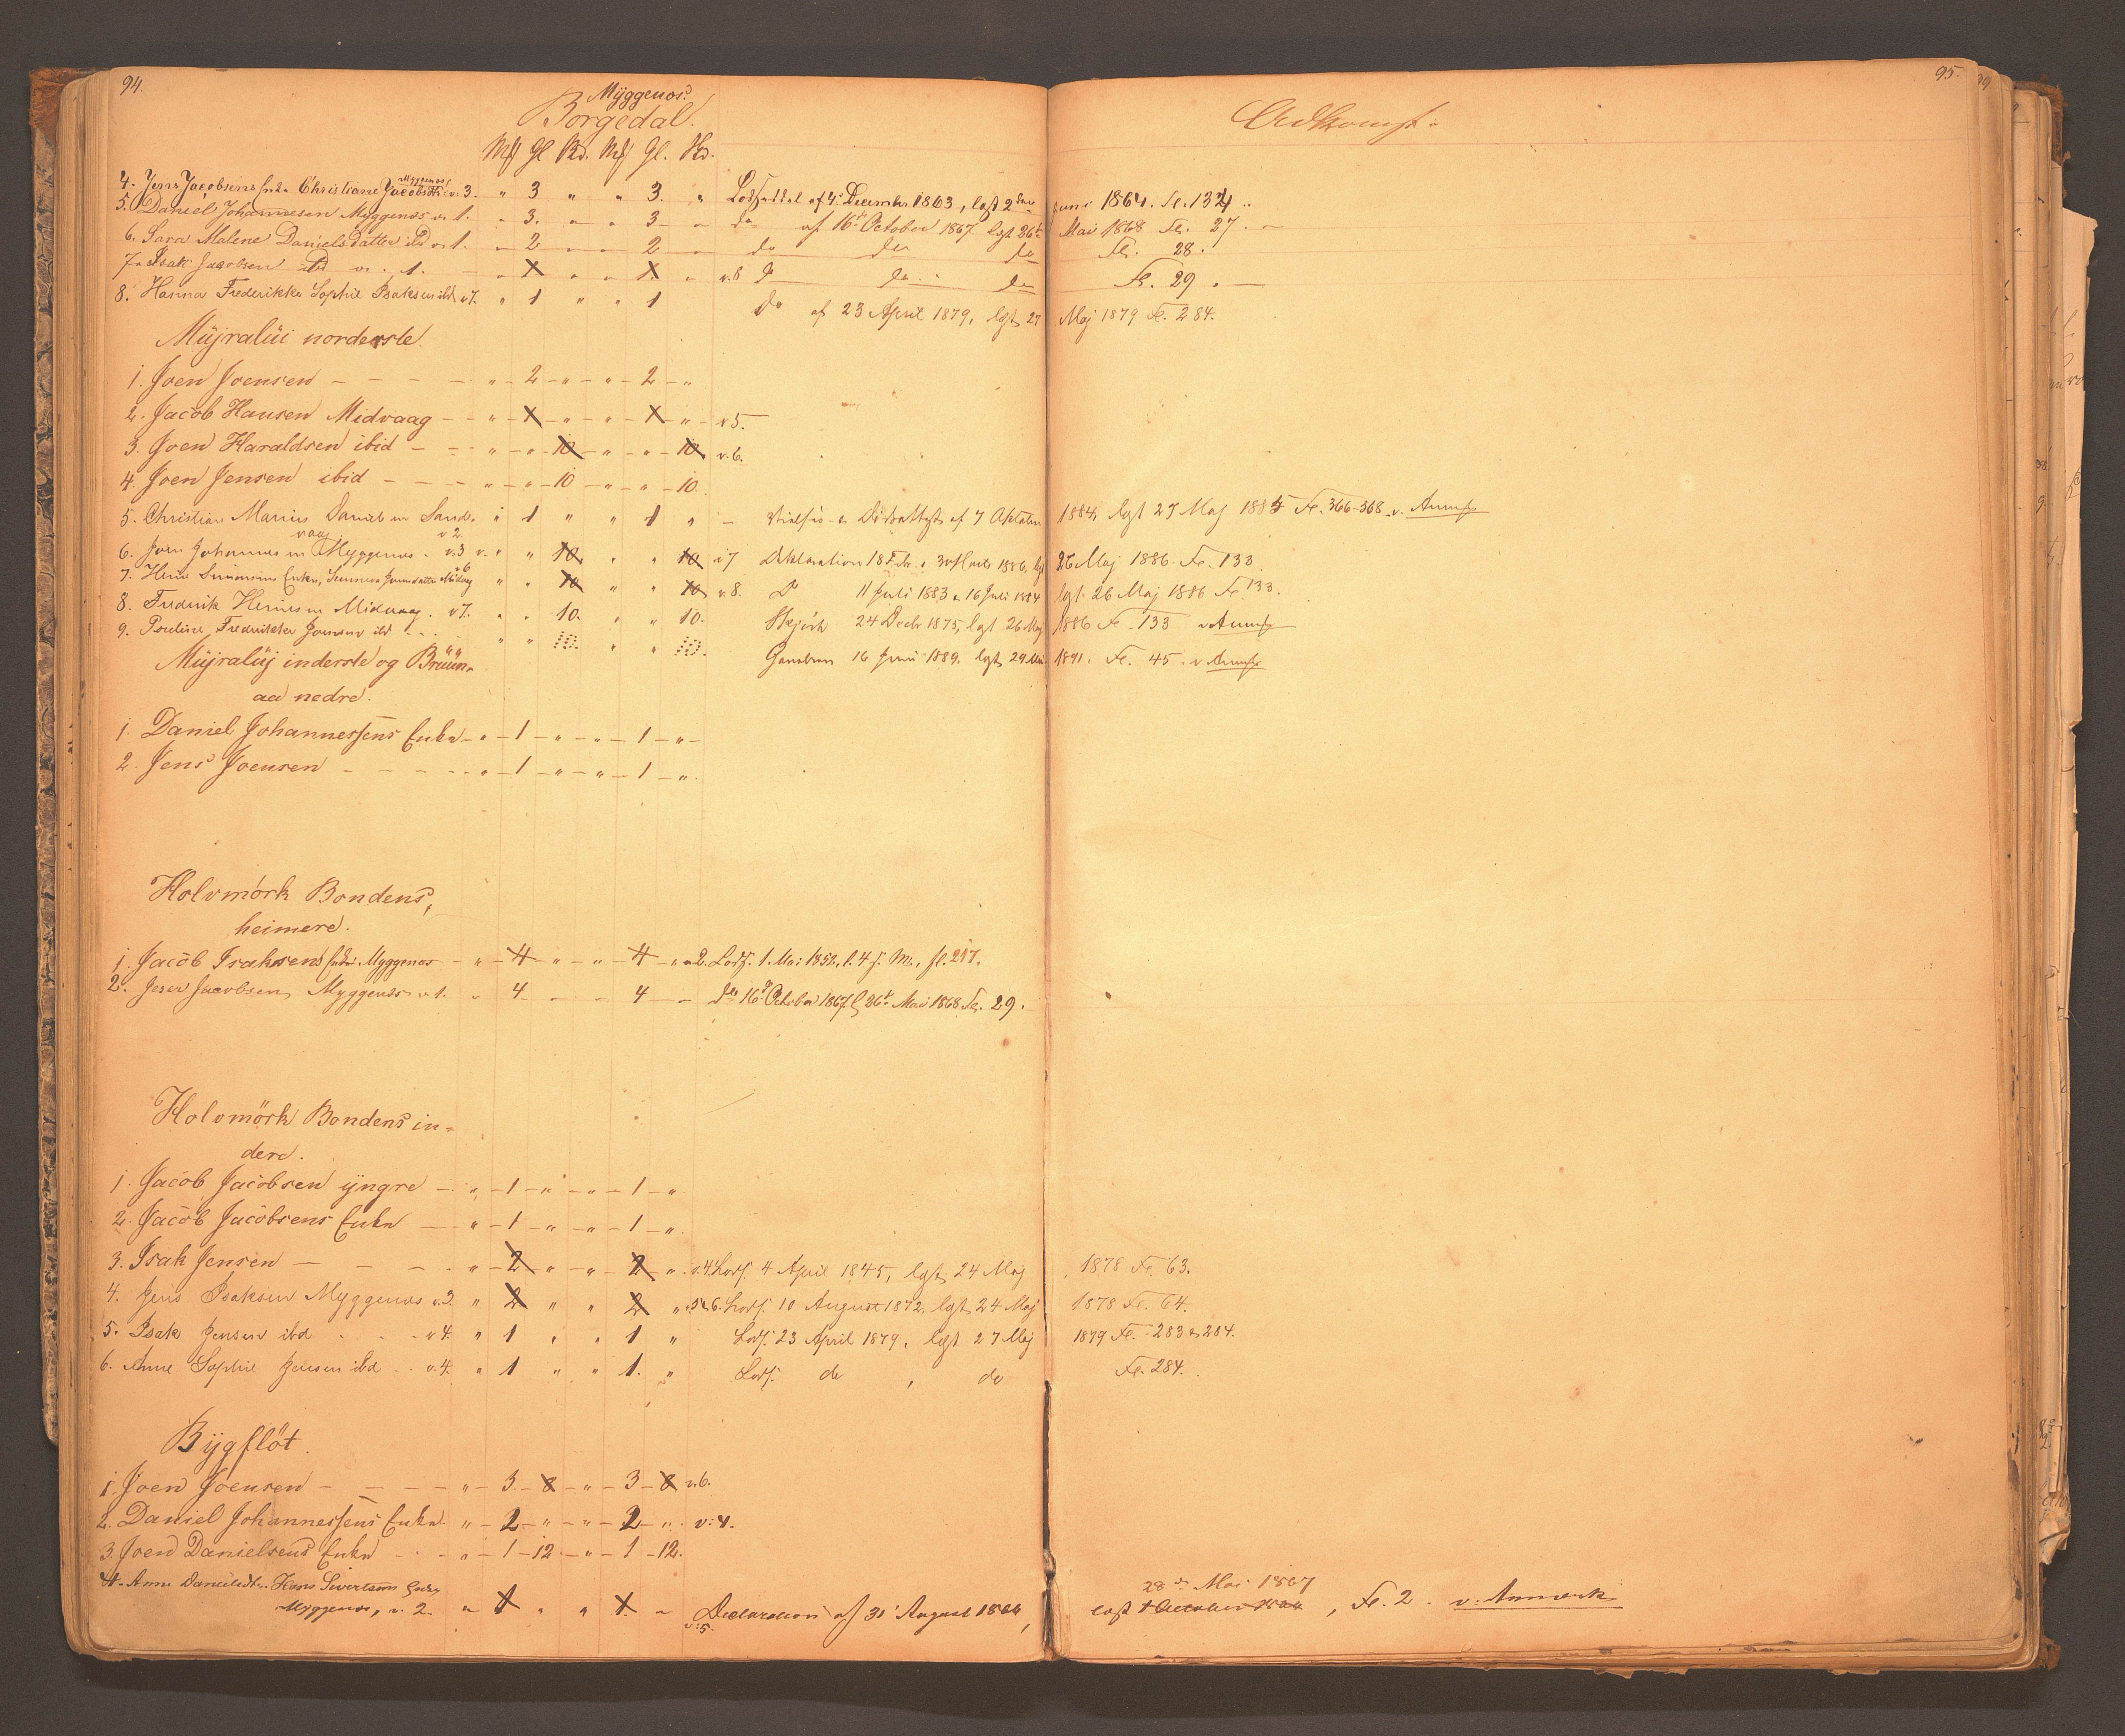 94.
Myggenos.
Borgedal.
Mk Gl Sk. Mk Gl. Sk.
Adkomst.
95.
4. Jens Jacobsens Enke Christiane Jacobsdtr Myggenos v. 3. " 3 " " 3. " Lodseddel af 4. December 1863, lgst 2den Juni 1864. Fo. 132
5. Daniel Johannesen Myggenos v. 1. " 3. " " 3 " do af 16d October 1867 lgst 26t Mai 1868 Fo. 27.
6. Sara Malene Danielsdatter ibd v. 1. " 2 " " 2 " do do do Fo. 28.
7. Isak Jacobsen ibd v. 1. " 1 " " 1 " v.8 do do do Fo. 29.
8. Hanna Frederikke Sophie Isaksen ibd v7. " 1 " " 1 do af 23 April 1879, lgst 27 Maj 1879 Fo. 284.
Müjralüi norderste.
1. Joen Joensen – – – " – 2 – " – " – 2 – "
2. Jacob Hansen Midvaag – " – X – " – " – X – " v5.
3. Joen Haraldsen ibid – " – " – 10 – " – " – 10. v.6.
4. Joen Jensen ibid – – – " – " – 10 – " – " – 10.
5. Christian Marius Danielsen Sandvaag v2 " 1 " " 1 " – Skifte- Attest af 7 Oktober 1884, lgst 27 Maj 1885 Fo. 366-368 v. Anmk
6. Joen Johannesen Myggenos. v.3 " " 10. " " 10 v7 Deklaration 18 Feb. 30 Marts 1886, lgst 26 Maj 1886 Fo. 133.
7. Enke, Midvaag v6 " " 10 " " 10 v.8. Do 11 Juli 1883 16 Juli 1884 lgst. 26 Maj 1886 Fo. 133.
8. Frederik Heinesen Midvaag. v7. " " 10. " " 10. Skjöde 24 Decbr 1875, lgst 26 Maj 1886 Fo. 133 v. Anmk
9. Frederikke Joensen ibd " " 10. " " 10. Gavebrev 16 Juni 1889. lgst 29 Mai 1891. Fo. 45. v Anmk
Müjralüj inderste og Brüün-
aa nedre.
1. Daniel Johannessens Enke – " – 1 – " – " – 1 – " –
2. Jens Joensen – – – " – 1 – " – " – 1 – " .
Holvmörk Bondens,
heimere.
1. Jacob Isaksens Enke Myggenos – " – 4 – " – " – 4 – " v2. Lods. 1. Mai 1852, l. 4 J. M., fl. 217.
2. Jens Jacobsen Myggenos v 1. " 4 – – 4 – do 16d October 1867 l 26t Mai 1868 Fo. 29.
Holvmörk Bondens in-
dere.
1. Jacob Jacobsen yngre – " – 1 – " – " – 1 – "
2. Jacob Jacobsens Enke – " – 1 – " – " – 1 – " .
3. Isak Jensen – – – " – 2 – " – " – 2 – " v.4. Lods. 4 April 1845, lgst 24 Maj 1878 Fo. 63.
4. Jens Isaksen Myggenos v.3. " 2 " " 2 " v5 v6. Lods. 10 August 1872. lgst 24 Maj 1878 Fo. 64.
5. Isak Jensen ibd . . . v 4. " 1 " " 1 " Lods. 23 April 1879, lgst 27 Maj 1879 Fo. 283 & 284.
6. Anne Sophie Jensen ibd . . v. 4. " 1 " " 1. " Lods. do , do Fo. 284.
Bygflöt.
1. Joen Joensen – – – – " – 3 – 8 – " – 3 – 8 v.6.
2. Daniel Johannessens Enke. " – 2 – " – " – 2 – " . v:4.
3. Joen Danielsens Enke – – " – 1 – 12 – " – 1 – 12.
4. Anne Danielsdtr. Hans Sivertsens Enke
Myggenos, v. 2. " 1 " " 1. " Declaration af 31 August 1866, lgst 1 October 1866 28de Mai 1867, Fo. 2. v. Anmærk
v:5.